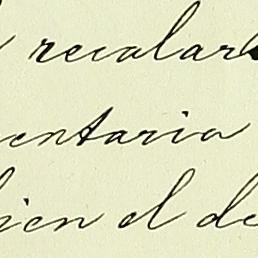 recalar
entaria
ien el de